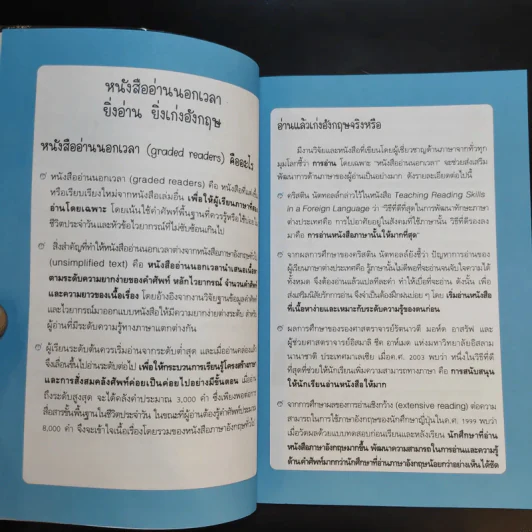 หนังสืออ่านนอกเวลา
ยิ่งอ่าน ยิ่งเก่งอังกฤษ
หนังสืออ่านนอกเวลา (graded readers) คืออะไร
หนังสืออ่านนอกเวลา (graded readers) คือ หนังสือที่แต่งขึ้น
หรือเรียบเรียงใหม่จากหนังสือเล่มอื่น เพื่อให้ผู้เรียนภาษา
อ่านโดยเฉพาะ โดยเน้นใช้คำศัพท์พื้นฐานที่ควรรู้หรือใช้บ่อยใน
ชีวิตประจำวันและหัวข้อไวยากรณ์ที่ไม่ซับซ้อนเกินไป
สิ่งสำคัญที่ทำให้หนังสืออ่านนอกเวลาต่างจากหนังสือภาษาอังกฤษทั่วไป
(unsimplified text) คือ หนังสืออ่านนอกเวลานำเสนอเนื้อหา
ตามระดับความยากง่ายของคำศัพท์ หลักไวยากรณ์ จำนวนคำศัพท์
และความยาวของเนื้อเรื่อง โดยอ้างอิงจากงานวิจัยฐานข้อมูลคำศัพท์
และไวยากรณ์มาออกแบบหนังสือให้มีความยากง่ายต่างระดับ สำหรับ
ผู้อ่านที่มีระดับความรู้ทางภาษาแตกต่างกัน
ผู้เรียนระดับต้นควรเริ่มอ่านจากระดับต่ำสุด และเมื่ออ่านคล่องแล้ว
จึงเลื่อนขึ้นไปอ่านระดับต่อไป เพื่อให้กระบวนการเรียนรู้โครงสร้างภาษา
และการสั่งสมคลังคำศัพท์ค่อยเป็นค่อยไปอย่างมีขั้นตอน เมื่ออ่าน
ถึงระดับสูงสุด จะได้คลังคำประมาณ 3,000 คำ ซึ่งเพียงพอต่อการ
สื่อสารขั้นพื้นฐานในชีวิตประจำวัน ในขณะที่ผู้อ่านต้องรู้คำศัพท์ประมาณ
8,000 คำ จึงจะเข้าใจเนื้อเรื่องโดยรวมของหนังสือภาษาอังกฤษทั่วไป
อ่านแล้วเก่งอังกฤษจริงหรือ
มีงานวิจัยและหนังสือที่เขียนโดยผู้เชี่ยวชาญด้านภาษาจากทั่วทุก
มุมโลกชี้ว่า การอ่าน โดยเฉพาะ "หนังสืออ่านนอกเวลา" จะช่วยส่งเสริม
พัฒนาการด้านภาษาของผู้อ่านเป็นอย่างมาก ดังรายละเอียดต่อไปนี้
คริสติน นัตทอลล์กล่าวไว้ในหนังสือ Teaching Reading Skills
in a Foreign Language ว่า "วิธีที่ดีที่สุดในการพัฒนาทักษะภาษา
ต่างประเทศคือ การไปอาศัยอยู่ในสังคมที่ใช้ภาษานั้น วิธีที่ดีรองลง
มาคือ การอ่านหนังสือภาษานั้นให้มากที่สุด"
จากมุมมองของคริสติน นัตทอลล์ยังชี้ว่า ปัญหาการอ่านของ
ผู้เรียนภาษาต่างประเทศคือ รู้ภาษานั้นไม่ดีพอที่จะอ่านจนจับใจความได้
ทั้งหมด จึงต้องอ่านแล้วแปลทีละคำ ทำให้เบื่อที่จะอ่าน ดังนั้น เพื่อ
ส่งเสริมนิสัยรักการอ่าน จึงจำเป็นต้องฝึกฝนบ่อย ๆ โดย เริ่มอ่านหนังสือ
ที่เนื้อหาง่ายและเหมาะกับระดับความรู้ของตนก่อน
ผลการศึกษาของรองศาสตราจารย์รัตนาวดี มอห์ด อาสราฟ และ
ผู้ช่วยศาสตราจารย์อิสมาลี ชีค อาห์เมด แห่งมหาวิทยาลัยอิสลาม
นานาชาติ ประเทศมาเลเซีย เมื่อค.ศ. 2003 พบว่า หนึ่งในวิธีที่ดี
ที่สุดที่ช่วยให้นักเรียนเพิ่มความสามารถทางภาษา คือ การสนับสนุน
ให้นักเรียนอ่านหนังสือให้มาก
จากการศึกษาผลของการอ่านเชิงกว้าง (extensive reading) ต่อความ
สามารถในการใช้ภาษาอังกฤษของนักศึกษาญี่ปุ่นในค.ศ. 1999 พบว่า
เมื่อวัดผลด้วยแบบทดสอบก่อนเรียนและหลังเรียน นักศึกษาที่อ่าน
หนังสือภาษาอังกฤษมากขึ้น พัฒนาความสามารถในการอ่านและความรู้
ด้านคำศัพท์มากกว่านักศึกษาที่อ่านภาษาอังกฤษน้อยกว่าอย่างเห็นได้ชัด